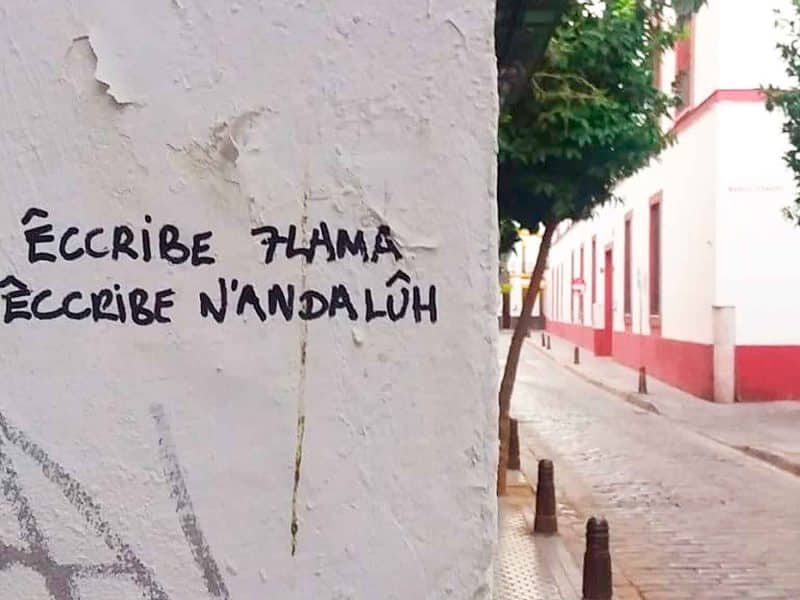 ÊCCRIBE 7LAMA
ÊCCRIBE N'ANDALÛH